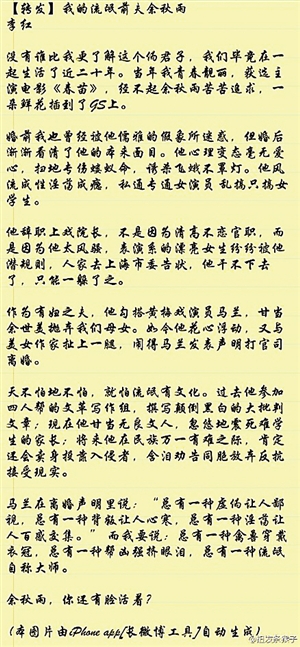 【转发】我的流氓前夫余秋雨
李红
没有谁比我更了解这个伪君子，我们毕竟在一
起生活了近二十年。当年我青春靓丽，获选主
演电影《春苗》，经不起余秋雨苦苦追求，一
朵鲜花插到了GS上。
婚前我也曾经被他儒雅的假象所迷惑，但婚后
渐渐看清了他的本来面目。他心理变态毫无爱
心，扫地专伤蝼蚁命，诱杀飞蛾不罩灯。他风
流成性淫荡成瘾，私通专通女演员 乱搞只搞女
学生。
他辞职上戏院长，不是因为清高不恋官职，而
是因为他太风骚，表演系的漂亮女生纷纷被他
潜规则，人家去上海市委告状，他干不下去
了，只能一躲了之。
作为有妇之夫，他勾搭黄梅戏演员马兰，甘当
余世美抛弃我们母女。如今他花心浮动，又与
美女作家扯上一腿，闹得马兰发表声明打官司
离婚。
天不怕地不怕，就怕流氓有文化。过去他参加
四人帮的文革写作组，撰写颠倒黑白的大批判
文章；现在他甘当无良文人，忽悠地震死难学
生的家长；将来他在民族万一有难之际，肯定
还会卖身投靠入侵者，含泪劝告同胞放弃反抗
接受现实。
马兰在离婚声明里说：“总有一种虚伪让人鄙
视，总有一种背叛让人心寒，总有一种淫荡让
人百感交集。”而我要说：总有一种禽兽穿戴
衣冠，总有一种帮凶强挤眼泪，总有一种流氓
自称大师。
余秋雨，你还有脸活着？
(本图片由iPhone app[长微博工具]自动生成)